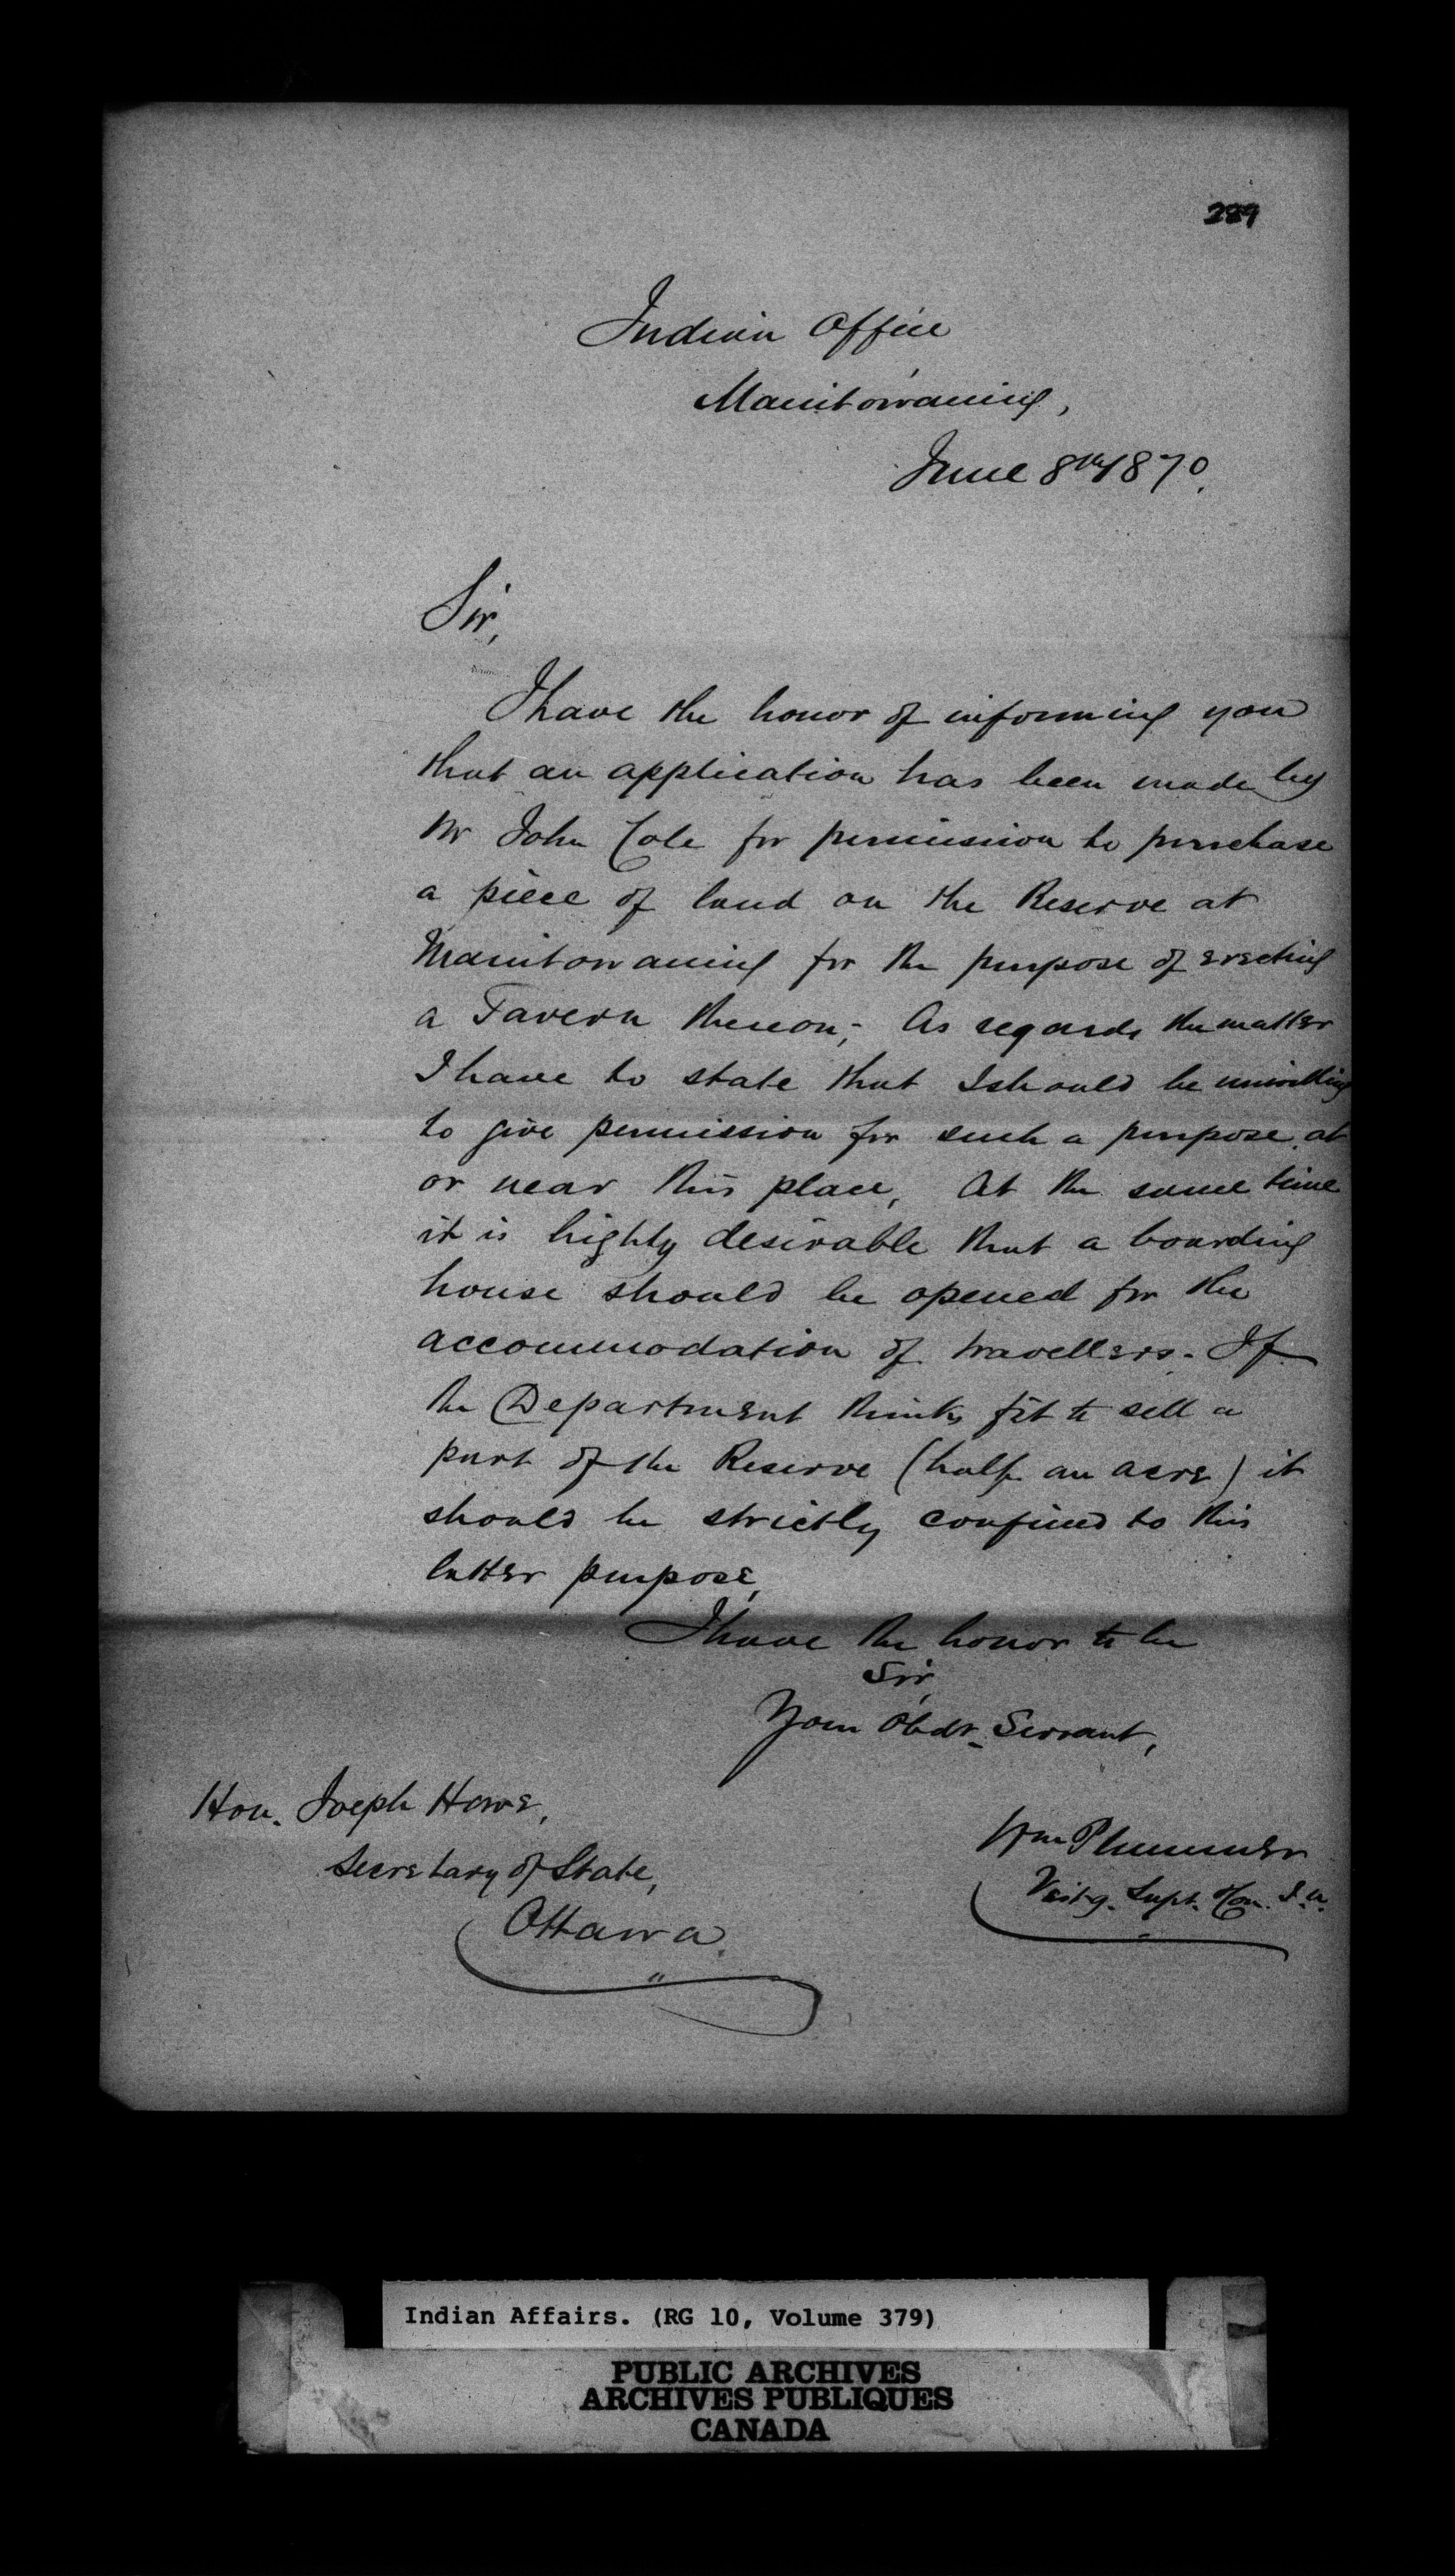 289
Indian Office
Manitowaning,
June 8th 1870.
Sir,
I have the honor of informing you
that an application has been made by
Mr John Cole for permission to purchase
a piece of land on the Reserve at
Manitowaning for the purpose of erecting
a Tavern thereon; As regards the matter
I have to state that I should be unwilling
to give permission for such a purpose at
or near this place, At the same time
it is highly desirable that a boarding
house should be opened for the
accommodation of travellers. If
the Department thinks fit to sell a
part of the Reserve (half an acre) it
should be strictly confined to this
latter purpose,
I have the honor to be
Sir,
Your Obdt. Servant,
Hon. Joseph Howe,
Secretary of State,
Ottawa.
Wm Plummer
Visitg. Supt. Com. I.A.
Indian Affairs. (RG 10, Volume 379)
PUBLIC ARCHIVES
ARCHIVES PUBLIQUES
CANADA